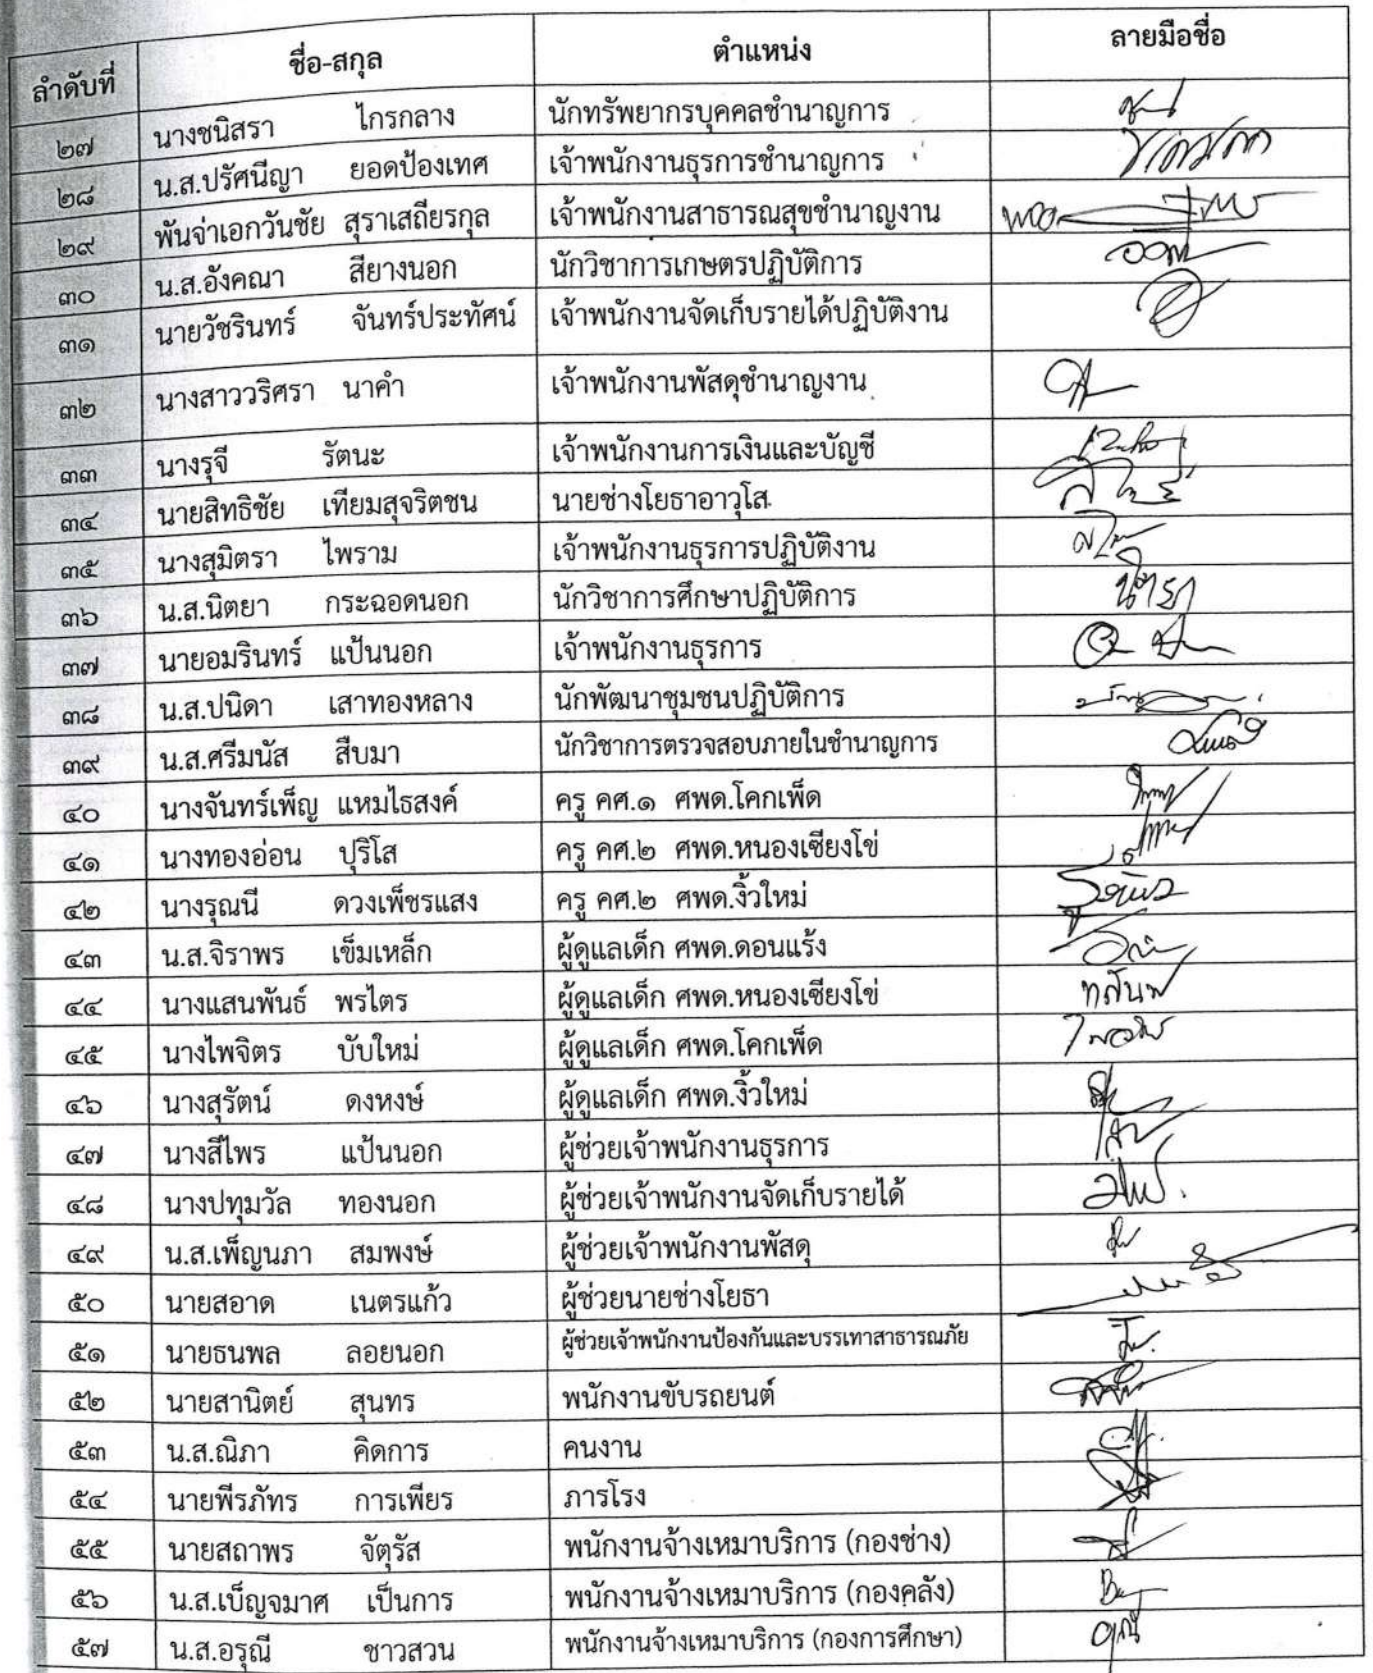 ลำดับที่ ชื่อ-สกุล ตำแหน่ง ลายมือชื่อ
๒๗ นางชนิสรา ไกรกลาง นักทรัพยากรบุคคลชำนาญการ
๒๘ น.ส.ปรัศนีญา ยอดป้องเทศ เจ้าพนักงานธุรการชำนาญการ
๒๙ พันจ่าเอกวันชัย สุราเสถียรกุล เจ้าพนักงานสาธารณสุขชำนาญงาน
๓๐ น.ส.อังคณา สียางนอก นักวิชาการเกษตรปฏิบัติการ
๓๑ นายวัชรินทร์ จันทร์ประทัศน์ เจ้าพนักงานจัดเก็บรายได้ปฏิบัติงาน
๓๒ นางสาววริศรา นาคำ เจ้าพนักงานพัสดุชำนาญงาน
๓๓ นางรุจี รัตนะ เจ้าพนักงานการเงินและบัญชี
๓๔ นายสิทธิชัย เทียมสุจริตชน นายช่างโยธาอาวุโส
๓๕ นางสุมิตรา ไพราม เจ้าพนักงานธุรการปฏิบัติงาน
๓๖ น.ส.นิตยา กระฉอดนอก นักวิชาการศึกษาปฏิบัติการ
๓๗ นายอมรินทร์ แป้นนอก เจ้าพนักงานธุรการ
๓๘ น.ส.ปนิดา เสาทองหลาง นักพัฒนาชุมชนปฏิบัติการ
๓๙ น.ส.ศรีมนัส สืบมา นักวิชาการตรวจสอบภายในชำนาญการ
๔๐ นางจันทร์เพ็ญ แหมไธสงค์ ครู คศ.๑ ศพด.โคกเพ็ด
๔๑ นางทองอ่อน ปุริโส ครู คศ.๒ ศพด.หนองเซียงโข่
๔๒ นางรุณนี ดวงเพ็ชรแสง ครู คศ.๒ ศพด.งิ้วใหม่
๔๓ น.ส.จิราพร เข็มเหล็ก ผู้ดูแลเด็ก ศพด.ดอนแร้ง
๔๔ นางแสนพันธ์ พรไตร ผู้ดูแลเด็ก ศพด.หนองเซียงโข่
๔๕ นางไพจิตร บับใหม่ ผู้ดูแลเด็ก ศพด.โคกเพ็ด
๔๖ นางสุรัตน์ ดงหงษ์ ผู้ดูแลเด็ก ศพด.งิ้วใหม่
๔๗ นางสีไพร แป้นนอก ผู้ช่วยเจ้าพนักงานธุรการ
๔๘ นางปทุมวัล ทองนอก ผู้ช่วยเจ้าพนักงานจัดเก็บรายได้
๔๙ น.ส.เพ็ญนภา สมพงษ์ ผู้ช่วยเจ้าพนักงานพัสดุ
๕๐ นายสอาด เนตรแก้ว ผู้ช่วยนายช่างโยธา
๕๑ นายธนพล ลอยนอก ผู้ช่วยเจ้าพนักงานป้องกันและบรรเทาสาธารณภัย
๕๒ นายสานิตย์ สุนทร พนักงานขับรถยนต์
๕๓ น.ส.ณิภา คิดการ คนงาน
๕๔ นายพีรภัทร การเพียร ภารโรง
๕๕ นายสถาพร จัตุรัส พนักงานจ้างเหมาบริการ (กองช่าง)
๕๖ น.ส.เบ็ญจมาศ เป็นการ พนักงานจ้างเหมาบริการ (กองคลัง)
๕๗ น.ส.อรุณี ชาวสวน พนักงานจ้างเหมาบริการ (กองการศึกษา)